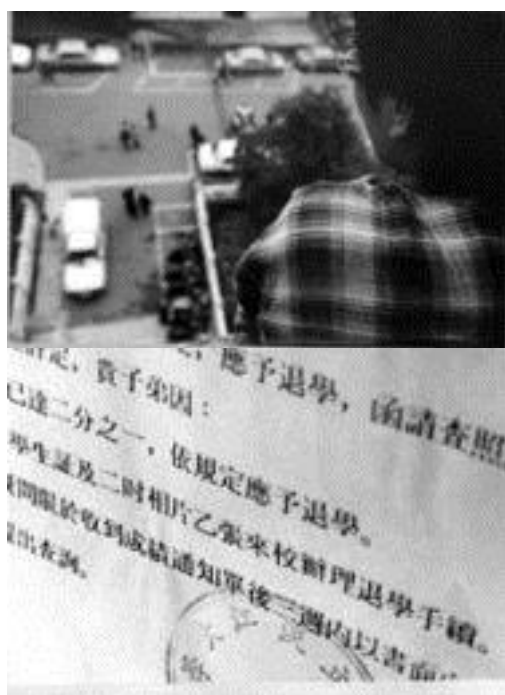 應予退學，函請查照
貴子弟因：
已達二分之一，依規定應予退學。
學生証及二吋相片乙張來校辦理退學手續。
問限於收到成績通知單後二週內以書面
出查詢。